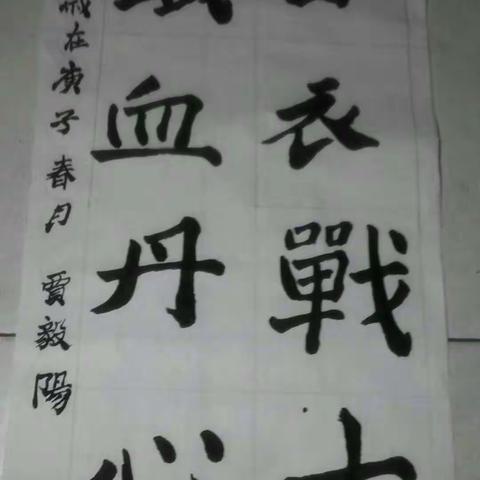 衣戰士
血丹心
歲在庚子春月 賈毅陽